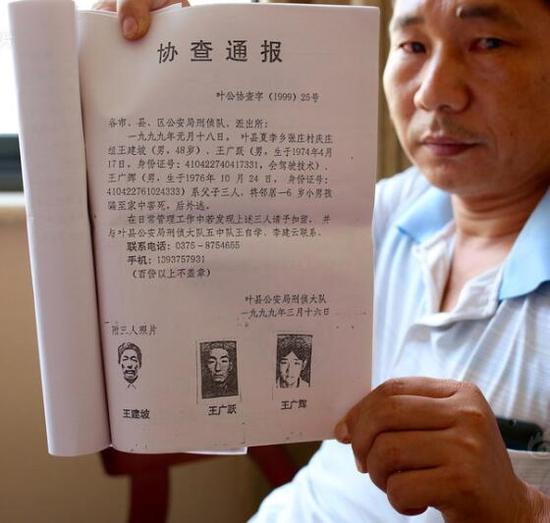 协查通报
叶公协查字（1999）25号
各市、县、区公安局刑侦队，派出所：
一九九九年元月十八日，叶县夏李乡张庄村庆庄
组王建坡（男，48岁）、王广跃（男，生于1974年4月
17日，身份证号：410422740417331，会驾驶技术）、
王广辉（男，生于1976年 10 月 24 日，身份证号：
410422761024333）系父子三人，将邻居一6 岁小男孩
骗至家中害死，后外逃。
在日常管理工作中若发现上述三人请予扣留，并
与叶县公安局刑侦大队五中队王自学、李建云联系。
联系电话：0375-8754655
手机：1393757931
（百份以上不盖章）
叶县公安局刑侦大队
一九九九年三月十六日
附三人照片
王建坡
王广跃
王广辉